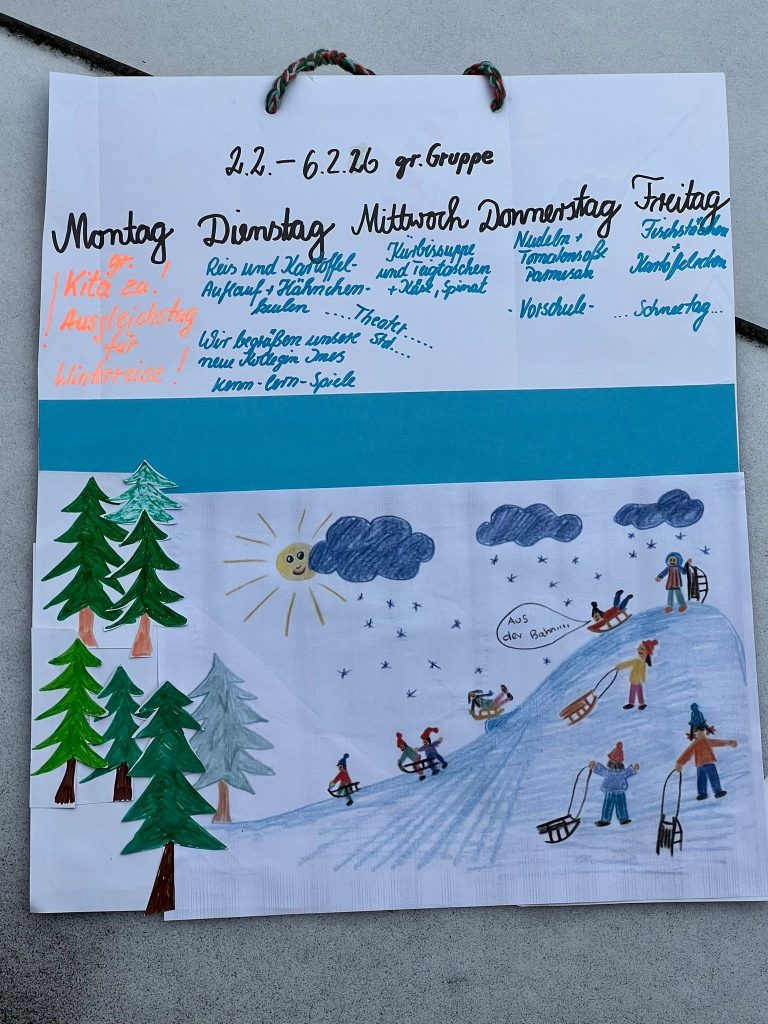 2.2. – 6.2.26 gr. Gruppe
Montag
gr.
! Kita zu!
! Ausgleichstag
für
Winterreise!
Dienstag
Reis und Kartoffel-
Auflauf + Hähnchen-
keulen
Wir begrüßen unsere
neue Kollegin Ines
Kenn-lern-Spiele
Mittwoch
Kürbissuppe
und Teigtaschen
+ Käse, Spinat
... Theater....
Std....
Donnerstag
Nudeln +
Tomatensoße
Parmesan
- Vorschule -
Freitag
Fischstäbchen
+
Kartoffelecken
... Schneetag...
Aus
der Bahn!!!!